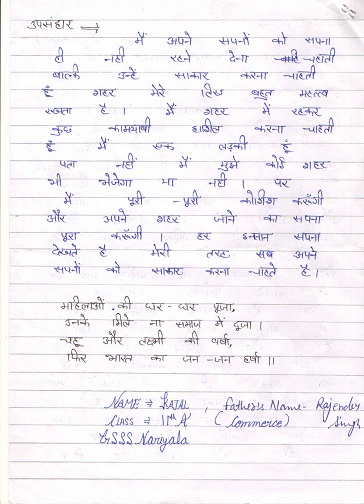 उपसंहार →
मैं अपने सपनों को सपना
ही नहीं रहने देना चाहती
बल्कि उन्हें साकार करना चाहती
हूँ शहर मेरे लिए बहुत महत्व
रखता है । मैं शहर में रहकर
कुछ कामयाबी हासिल करना चाहती
हूँ मैं एक लड़की हूँ
पता नहीं मैं मुझे कोई शहर
भी भेजेगा या नहीं । पर
मैं पूरी - पूरी कोशिश करूँगी
और अपने शहर जाने का सपना
पूरा करूँगी । हर इन्सान सपना
देखते है मेरी तरह सब अपने
सपनों को साकार करना चाहते है ।
महिलाओं की घर - घर पूजा,
उनके मिले ना समाज में दूजा ।
चहू और लक्ष्मी की वर्षा,
फिर भारत का जन - जन हर्षा ।।
NAME → KAJAL , Father's Name - Rajender Singh
CLASS → 11th A (Commerce)
GSSS Nariyala